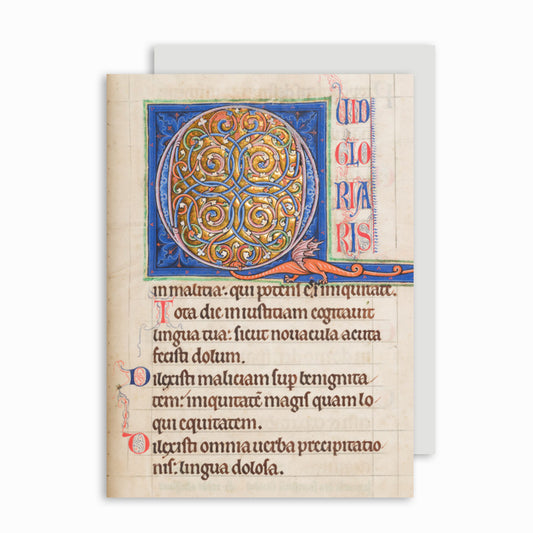 Q UID
GLO
RIA
RIS
in malitia: qui potens es in iniquitate.
Tota die iniustitiam cogitauit
lingua tua: sicut nouacula acuta
fecisti dolum.
Dilexisti maliciam sup benignita
tem: iniquitatē magis quam lo
qui equitatem.
Dilexisti omnia uerba precipitatio
nis: lingua dolosa.